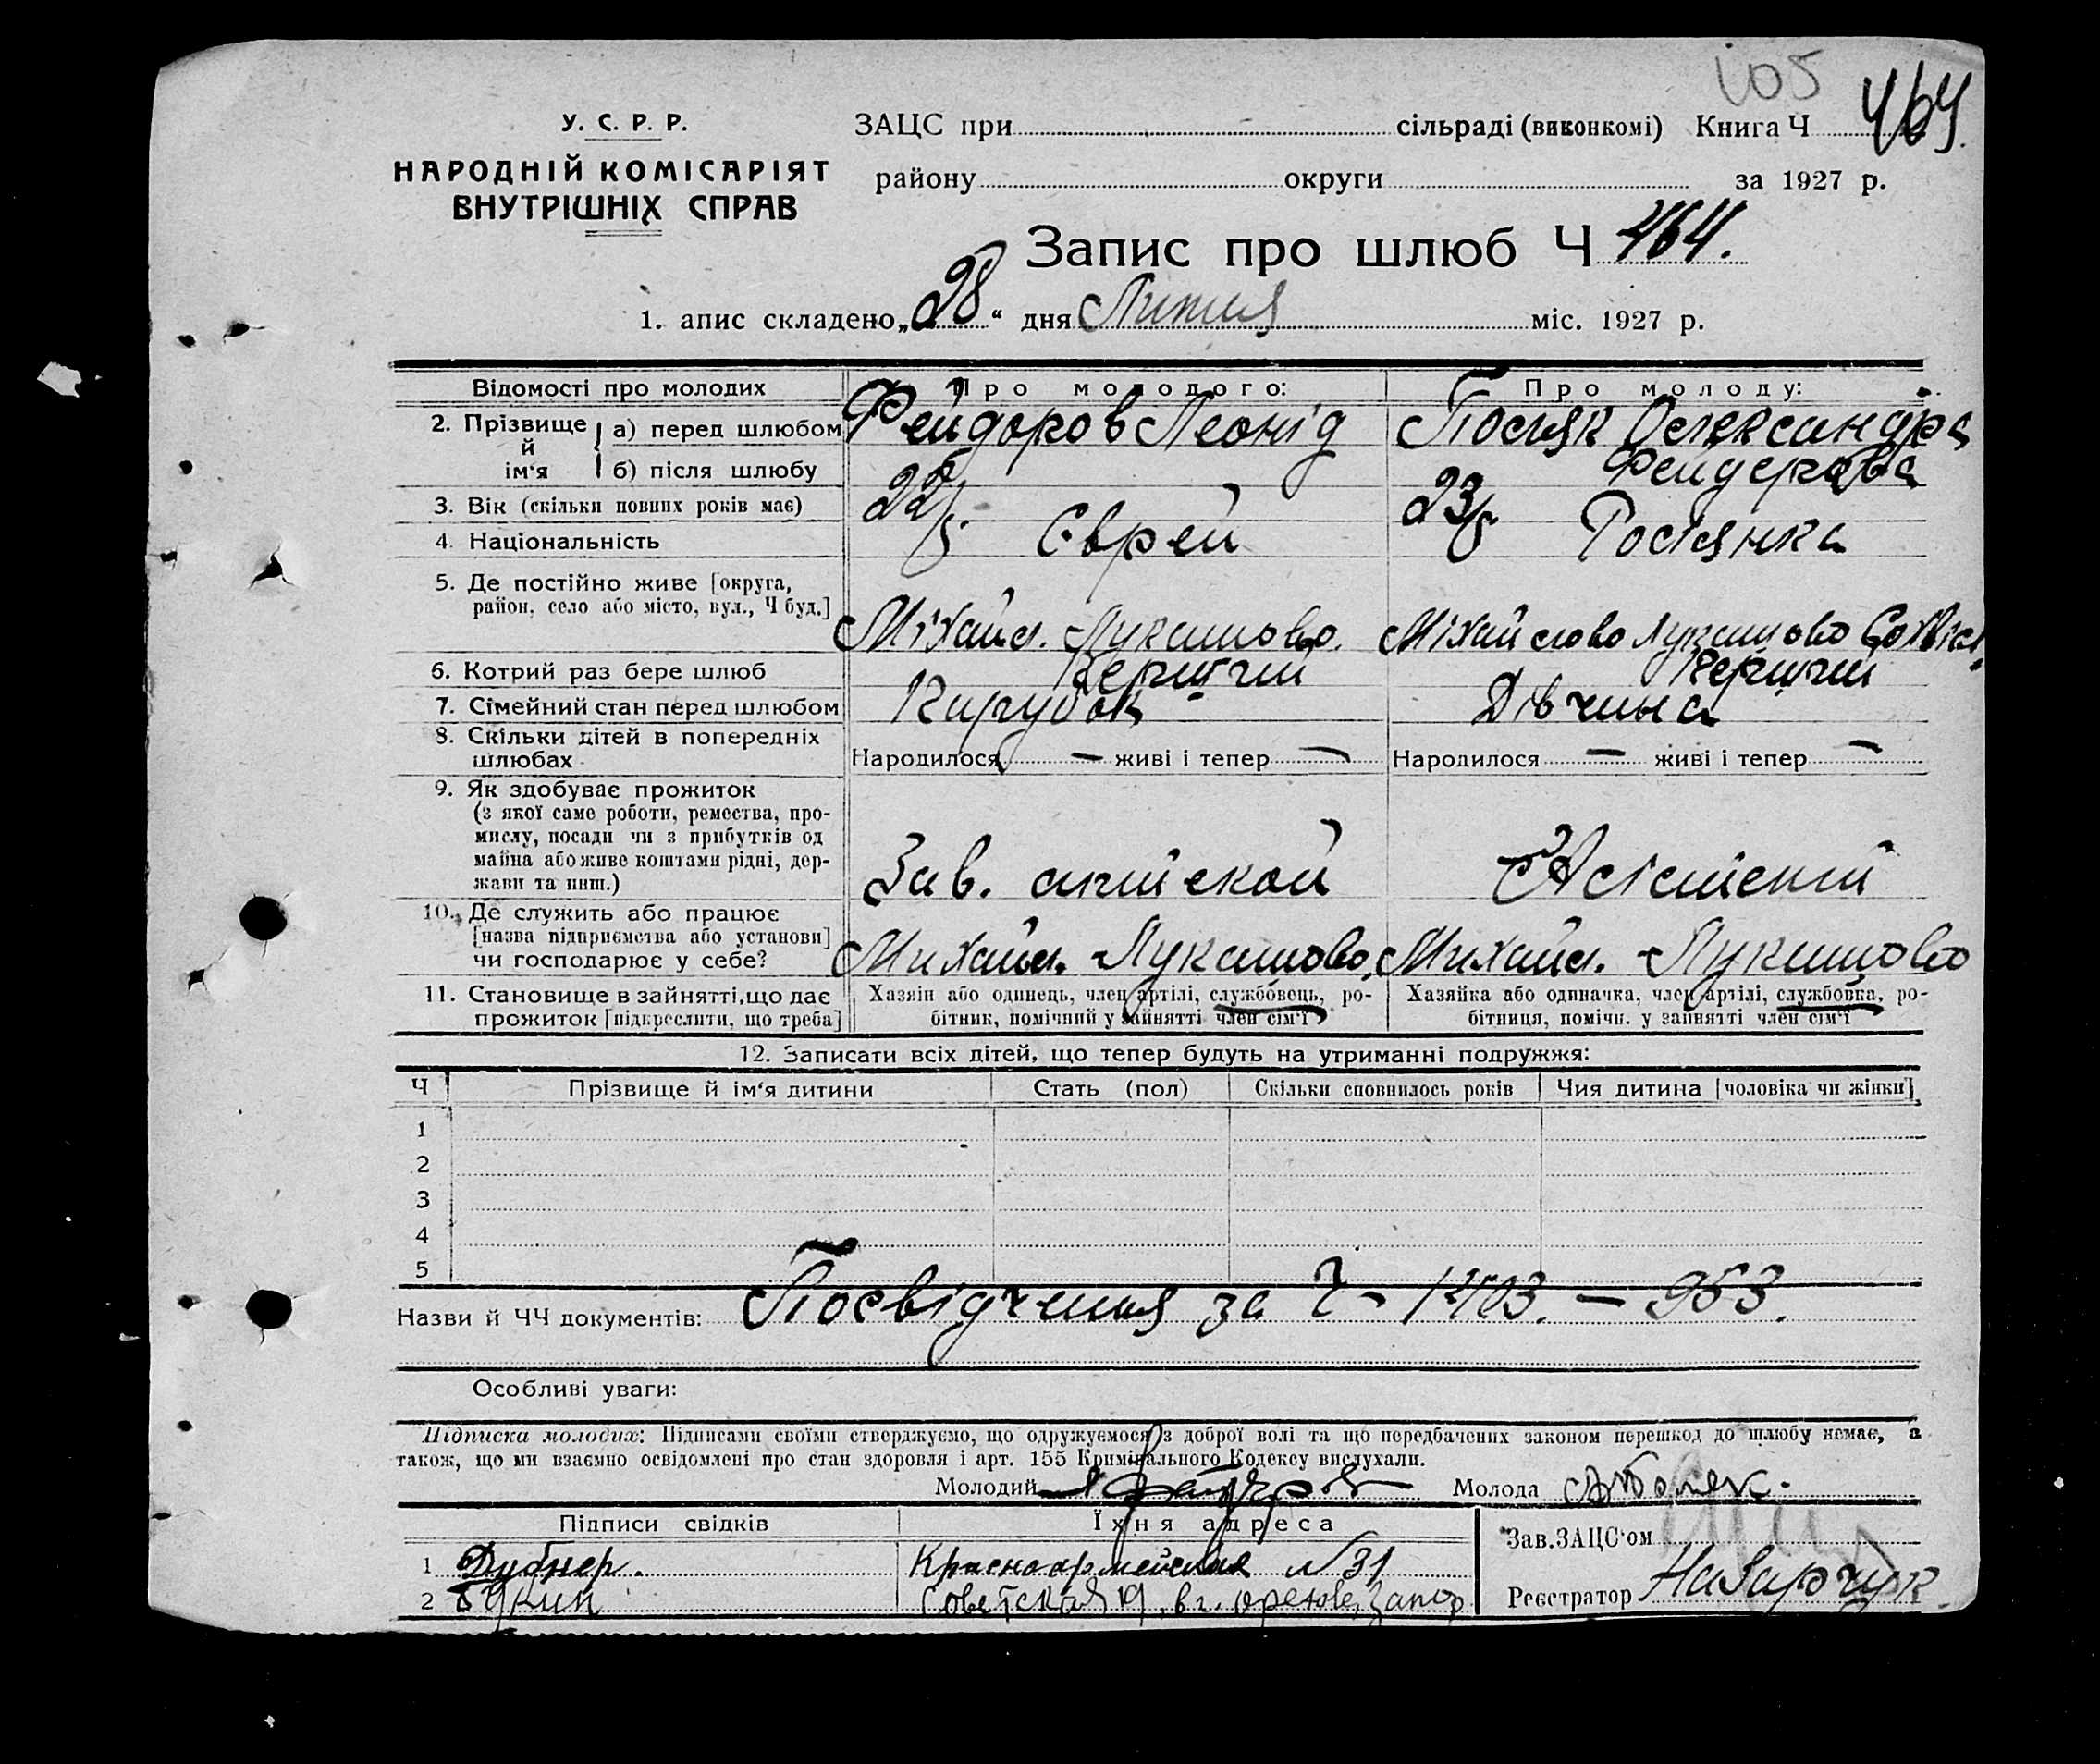 105
464.
У. С. Р. Р.
НАРОДНІЙ КОМІСАРІЯТ
ВНУТРІШНІХ СПРАВ
ЗАЦС при сільраді (виконкомі) Книга Ч
району округи за 1927 р.
Запис про шлюб Ч 464.
1. апис складено „28“ дня Липня міс. 1927 р.
Відомості про молодих Про молодого: Про молоду:
2. Прізвище й ім'я а) перед шлюбом Фейдоров Леонід Посляк Олександра
б) після шлюбу Фейдерова
3. Вік (скільки повних років має) 22 23
4. Національність Єврей Росіянка
5. Де постійно живе [округа,
район, село або місто, вул., Ч буд.] Міхайл. Лукашово. Міхайлово Лукашово
6. Котрий раз бере шлюб Перший Перший
7. Сімейний стан перед шлюбом Парубок Дівчина
8. Скільки дітей в попередніх
шлюбах Народилося — живі і тепер — Народилося — живі і тепер —
9. Як здобуває прожиток
(з якої саме роботи, ремества, про-
мислу, посади чи з прибутків од
майна або живе коштами рідні, дер-
жави та инш.) Зав.
10. Де служить або працює
[назва підприємства або установи]
чи господарює у себе? Михайл. Лукашово, Михайл. Лукашово
11. Становище в зайнятті, що дає
прожиток [підкреслити, що треба]
Хазяін або одинець, член артілі, службовець, ро-
бітник, помічний у зайнятті член сім'ї
Хазяйка або одиначка, член артілі, службовка, ро-
бітниця, помічн. у зайнятті член сім'ї
12. Записати всіх дітей, що тепер будуть на утриманні подружжя:
Ч Прізвище й ім'я дитини Стать (пол) Скільки сповнилось років Чия дитина [чоловіка чи жінки]
1
2
3
4
5
Назви й ЧЧ документів: Посвідчення за Ч - 1403. — 953.
Особливі уваги:
Підписка молодих: Підписами своїми стверджуємо, що одружуємося з доброї волі та що передбачених законом перешкод до шлюбу немає, а
також, що ми взаємно освідомлені про стан здоровля і арт. 155 Кримінального Кодексу вислухали.
Молодий Молода
Підписи свідків Їхня адреса
1 Дубнер. Красноармейская №31
2 Букин Советская
Зав. ЗАЦС'ом
Реєстратор Назарчук